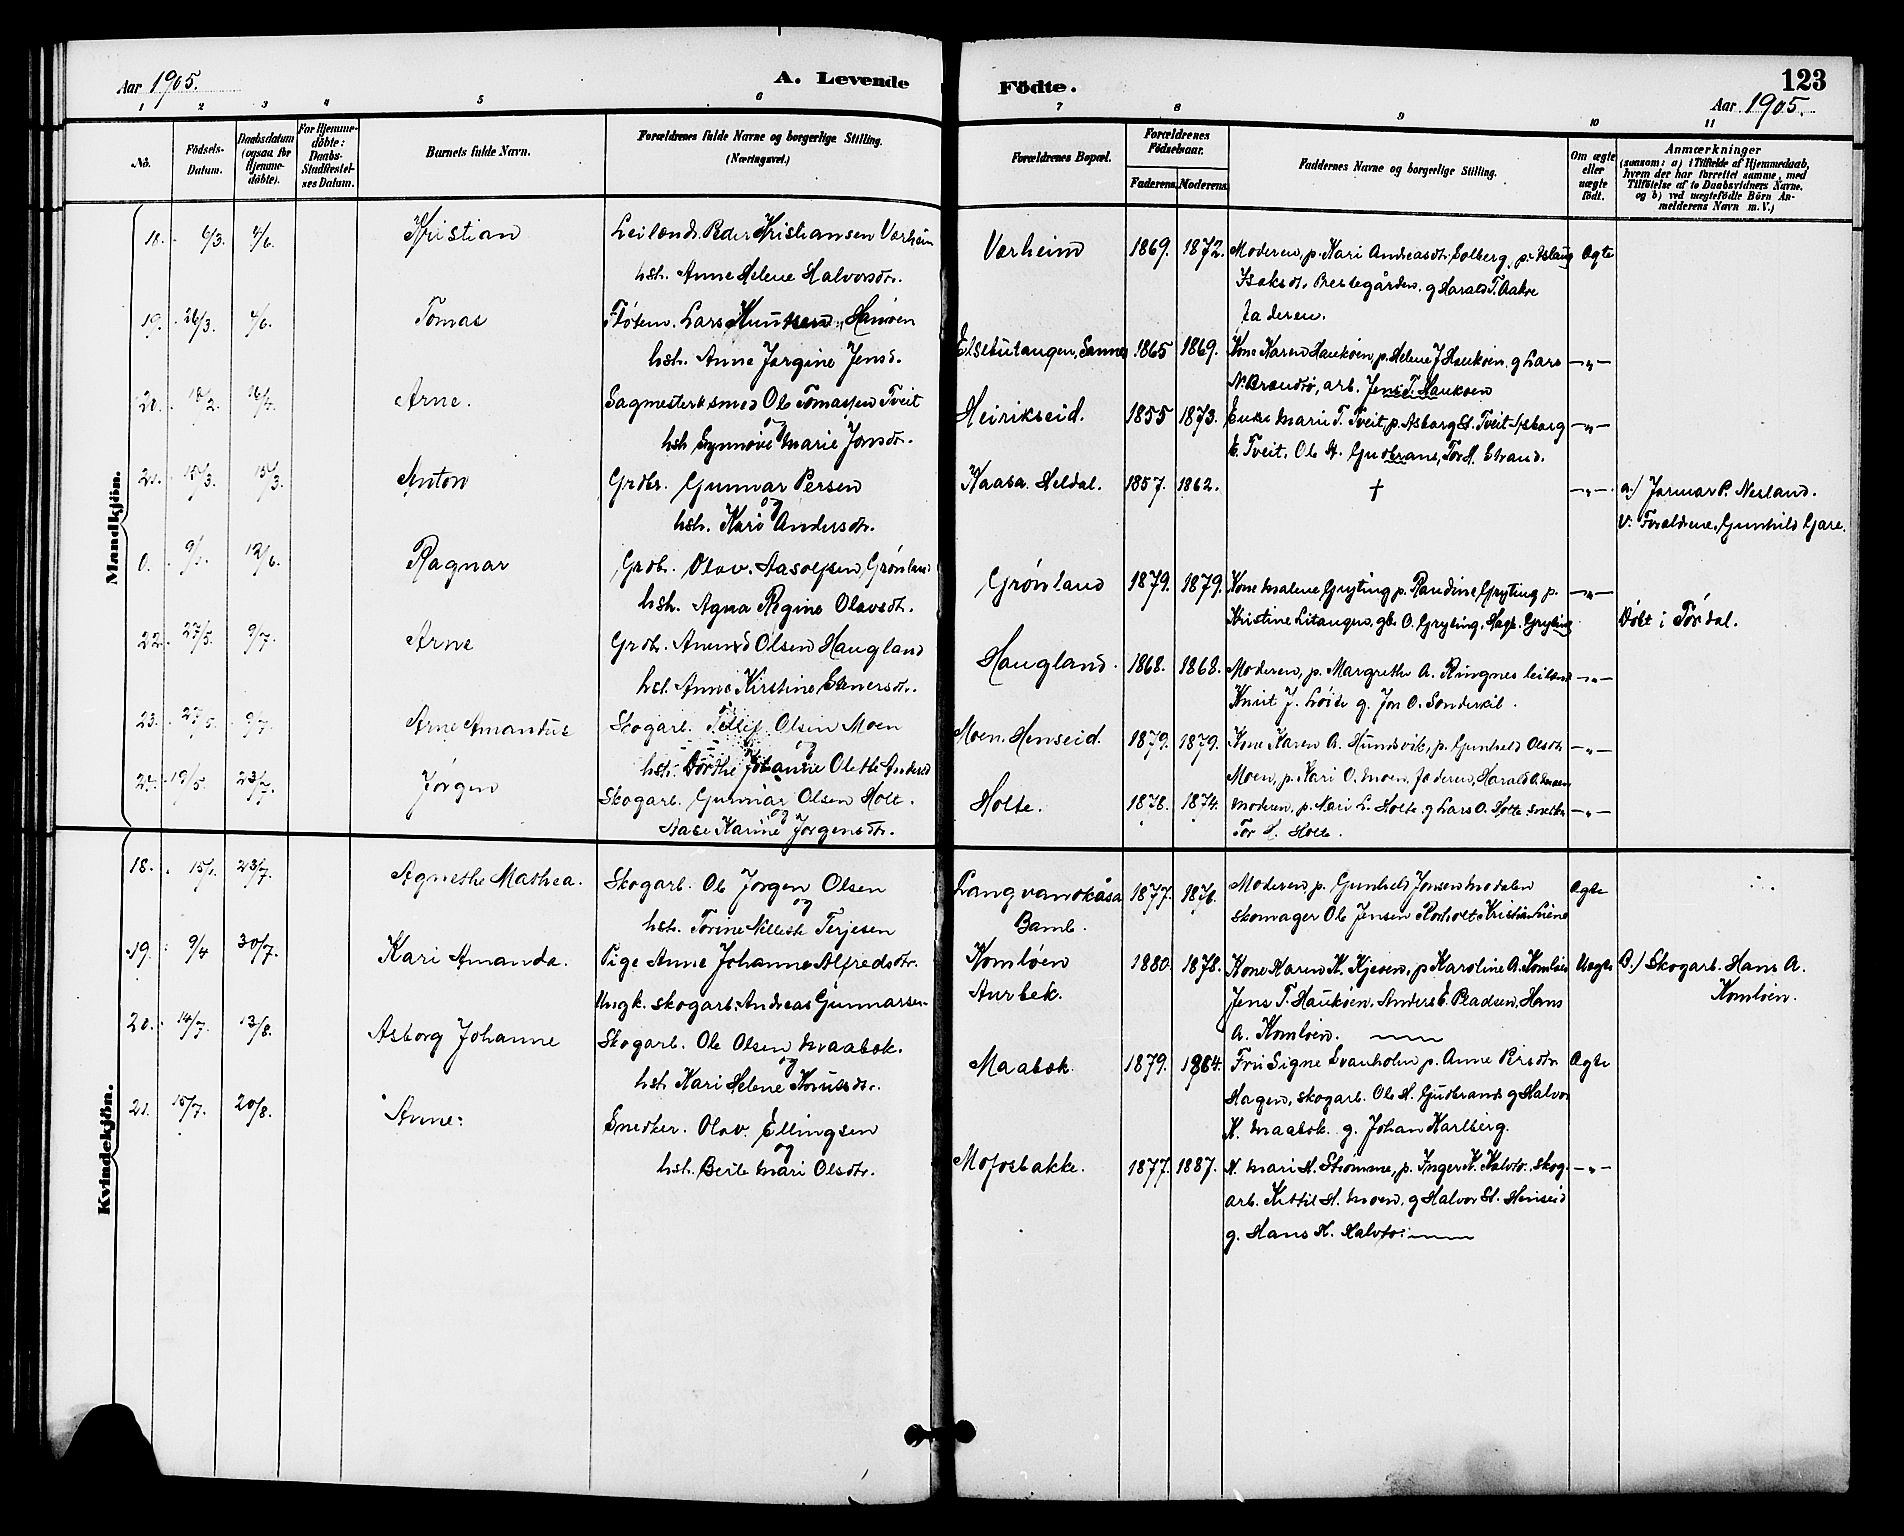 Aar 1905.
A. Levende Födte.
123
Aar 1905.
1 2 3 4 5 6 7 8 9 10 11
No.
Födsels-Datum.
Daabsdatum (ogsaa for Hjemmedöbte).
For Hjemmedöbte: Daabs-Stadfæstelses Datum.
Barnets fulde Navn.
Forældrenes fulde Navne og borgerlige Stilling. (Næringsvei.)
Forældrenes Bopæl.
Forældrenes Födselsaar.
Faderens. Moderens.
Faddernes Navne og borgerlige Stilling.
Om ægte eller uægte födt.
Anmærkninger (saasom: a) i Tilfælde af Hjemmedaab, hvem der har forrettet samme, med Tilföielse af to Daabsvidners Navne, og b) ved uægtefödte Börn Anmelderens Navn m. V.)
Mandkjön.
18. 6/3. 4/6. Kristian
Leilænd. Peder Kristiansen Værheim
hst. Anne Helene Halvorsdtr.
Værheim 1869. 1872.
Moderen, p. Kari Andreasdtr. Solberg, p. Aslaug
Isaksdtr. Prestegården. g Harald T. Aakre
faderen.
Ægte
19. 26/3. 4/6. Tomas
Fløtem. Lars Knutsen, Hauøen
hst. Anne Jørgine Jensd.
Elsebutangen, Sannes 1865 1869.
Kone Karen Haukøen, p. Helene J Haukøen. g Lars
N. Brandsø, arb. Jens T. Haukøen
—„—
20. Arne.
Sagmestersmed Ole Tomassen Tveit
og
hst Synnøve Marie Jonsdtr.
Heirikseid. 1855 1873.
Enke Marie T. Tveit, p. Asborg St. Tveit Asborg
E. Tveit, Ole H. Gudbrans, Tor H. Strand.
—„—
21. 15/3. 15/3. Anton
Grdbr. Gunnar Persen
og
hst. Kari Andersdtr.
Kaasa. Heldal. 1857. 1862.
†
—„—
a.) Jarmar P. Nesland.
V. Foreldrene, Gunhild Gare.
0. 12/6. Ragnar
Grdb. Olav. Aasolfsen Grønland
hst. Agna Regine Olavsdt.
Grønland 1879. 1879.
Kone Malene Gryting p. Randine Gryting p.
Kristine Litangen, gb. O. Gryting, Hag. Gryting
—„—
Døbt i Tørdal.
22. 27/5. 9/7. Arne
Grdb. Amund Olsen Haugland
hst. Anne Kirstine Einersdt.
Haugland. 1868. 1868.
Moderen, p. Margrethe A. Ringnes leilænd
Knut J. Løite g. Jon O. Sønderkil.
—„—
23. 27/5. 9/7. Arne Amandus
Skogarb. Tellef Olsen Moen
og
hst. Dorthe Johanne Olette Andersd
Moen. Henseid. 1879. 1879.
Kone Karen A. Hundsvik, p. Gunhild Olsdtr
Moen, p. Kari O. Moen, faderen, Harald O. Moen
—„—
24. 19/5. 23/7. Jørgen
Skogarb. Gunnar Olsen Holt.
og
Aase Karine Jørgensdtr.
Holte. 1878. 1874.
Moderen, p. Mari L. Holte g Lars O. Holte
Tor H. Holte.
—„—
Kvindekjön.
18. 15/1. 23/7. Agnethe Mathea.
Skogarb. Ole Jørgen Olsen
og
hst. Torine Nilleste Terjesen
Langvandkåsa
Bamb.
1877. 1876.
Moderen, p. Gunhild Jonsen Modalen
skomager Ole Jensen Rørholt Kristian Liene
Ægte
19. 9/4 30/7. Kari Amanda.
Pige Anne Johanne Alfredsdtr.
Ungk. skogarb. Andreas Gunnarsen
Komløen
Aurbek.
1880. 1878.
Kone Karen K. Kjøen, p Karoline A. Komløen
Jens T. Haukøen. Anders E. Pladsen, Hans
A. Komløen.
Uægte
B.) Skogarb. Hans A.
Komløen.
20. 14/7. 13/8. Asborg Johanne
Skogarb. Ole Olsen Maabøk.
og
hst. Kari Helene Knutsdtr.
Maabøk. 1879. 1884.
Fru Signe Svanholm p. Anne Persdtr
Hagen, skogarb. Ole H. Gudbrands g Halvor
K. Maabøk. g. Johan Karlberg.
Ægte
21. 15/7. 20/8. Anne:
Snedker. Olav. Ellingsen
og
hst. Berte Mari Olsdtr.
Mofosbakke. 1877. 1887.
K. Mari H. Strømme, p. Inger K. Kalvto. skog.
arb. Kittil H. Moen, g Halvor St. Henseid
g. Hans H. Kalvto:
—„—